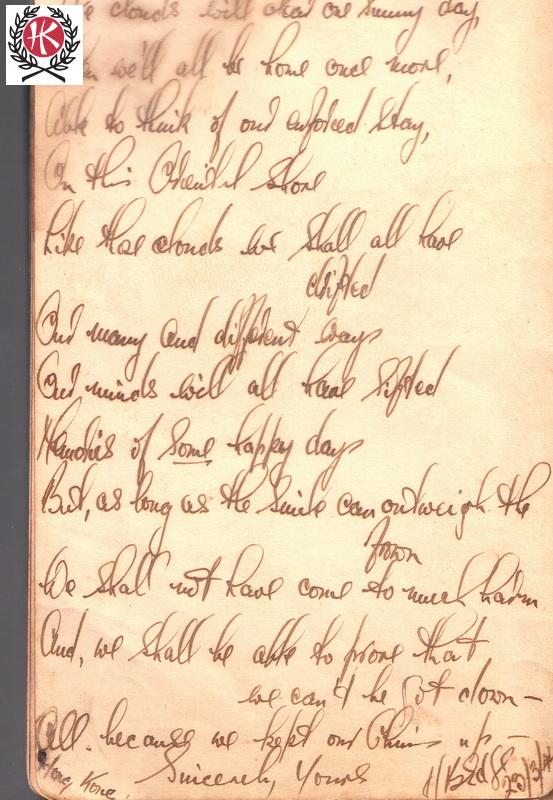 HK
clouds will clear one sunny day,
we'll all be home once more,
Able to think of our enforced stay,
On this Oriental Shore
Like those clouds we shall all have
drifted
Our many and different ways
Our minds will all have sifted
Memories of some happy days
But, as long as the smile can outweigh the
frown
We shall not have come to much harm
And, we shall be able to prove that
we can't be got down -
All. because we kept our Chins up -
Hong Kong. Sincerely, Yours
23/3/4